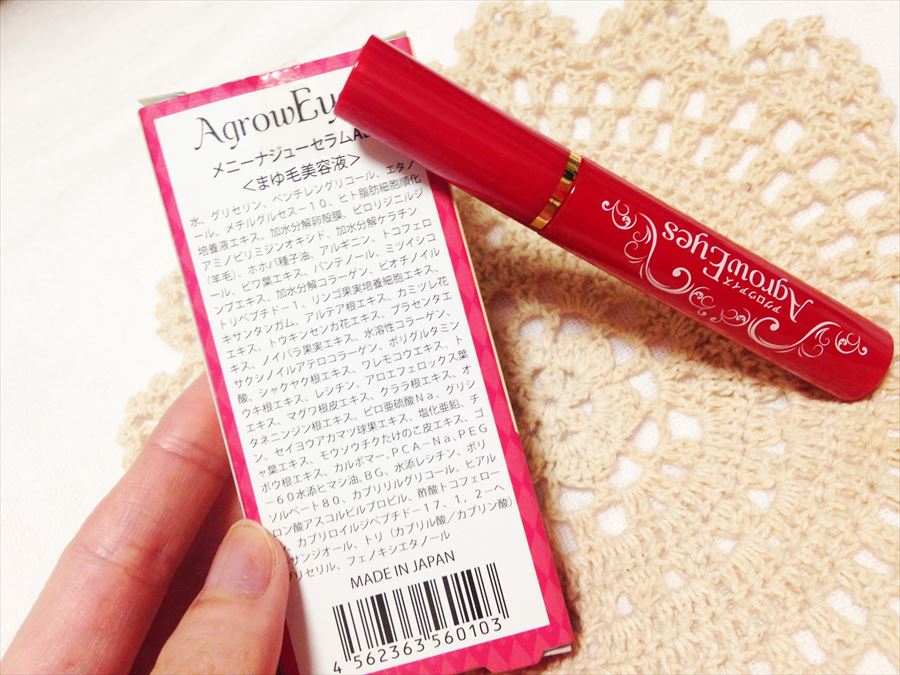 AgrowEy
メニーナジューセラムA
<まゆ毛美容液>
水、グリセリン、ペンチレングリコール、エタノ
ール、メチルグルセス－10、ヒト脂肪細胞順化
培養液エキス、加水分解卵殻膜、ピロリジニルジ
アミノピリミジンオキシド、加水分解ケラチン
(羊毛)、ホホバ種子油、アルギニン、トコフェロ
ール、ビワ葉エキス、パンテノール、ミツイシコ
ンブエキス、加水分解コラーゲン、ビオチノイル
トリペプチド－1、リンゴ果実培養細胞エキス、
キサンタンガム、アルテア根エキス、カミツレ花
エキス、トウキンセンカ花エキス、プラセンタエ
キス、ノイバラ果実エキス、水溶性コラーゲン、
サクシノイルアテロコラーゲン、ポリグルタミン
酸、シャクヤク根エキス、ワレモコウエキス、ト
ウキ根エキス、レシチン、アロエフェロックス葉
エキス、マグワ根皮エキス、クララ根エキス、オ
タネニンジン根エキス、ピロ亜硫酸Na、グリシ
ン、セイヨウアカマツ球果エキス、塩化亜鉛、チ
ャ葉エキス、モウソウチクたけのこ皮エキス、ゴ
ボウ根エキス、カルボマー、PCA－Na、PEG
－60水添ヒマシ油、BG、水添レシチン、ポリ
ソルベート80、カプリリルグリコール、ヒアル
ロン酸アスコルビルプロピル、酢酸トコフェロー
カプロイルジペプチド－17、1、2－ヘ
サンジオール、トリ（カプリル酸／カプリン酸）
リセリル、フェノキシエタノール
MADE IN JAPAN
4 562363 560103
アグロウアイズ
AgrowEyes